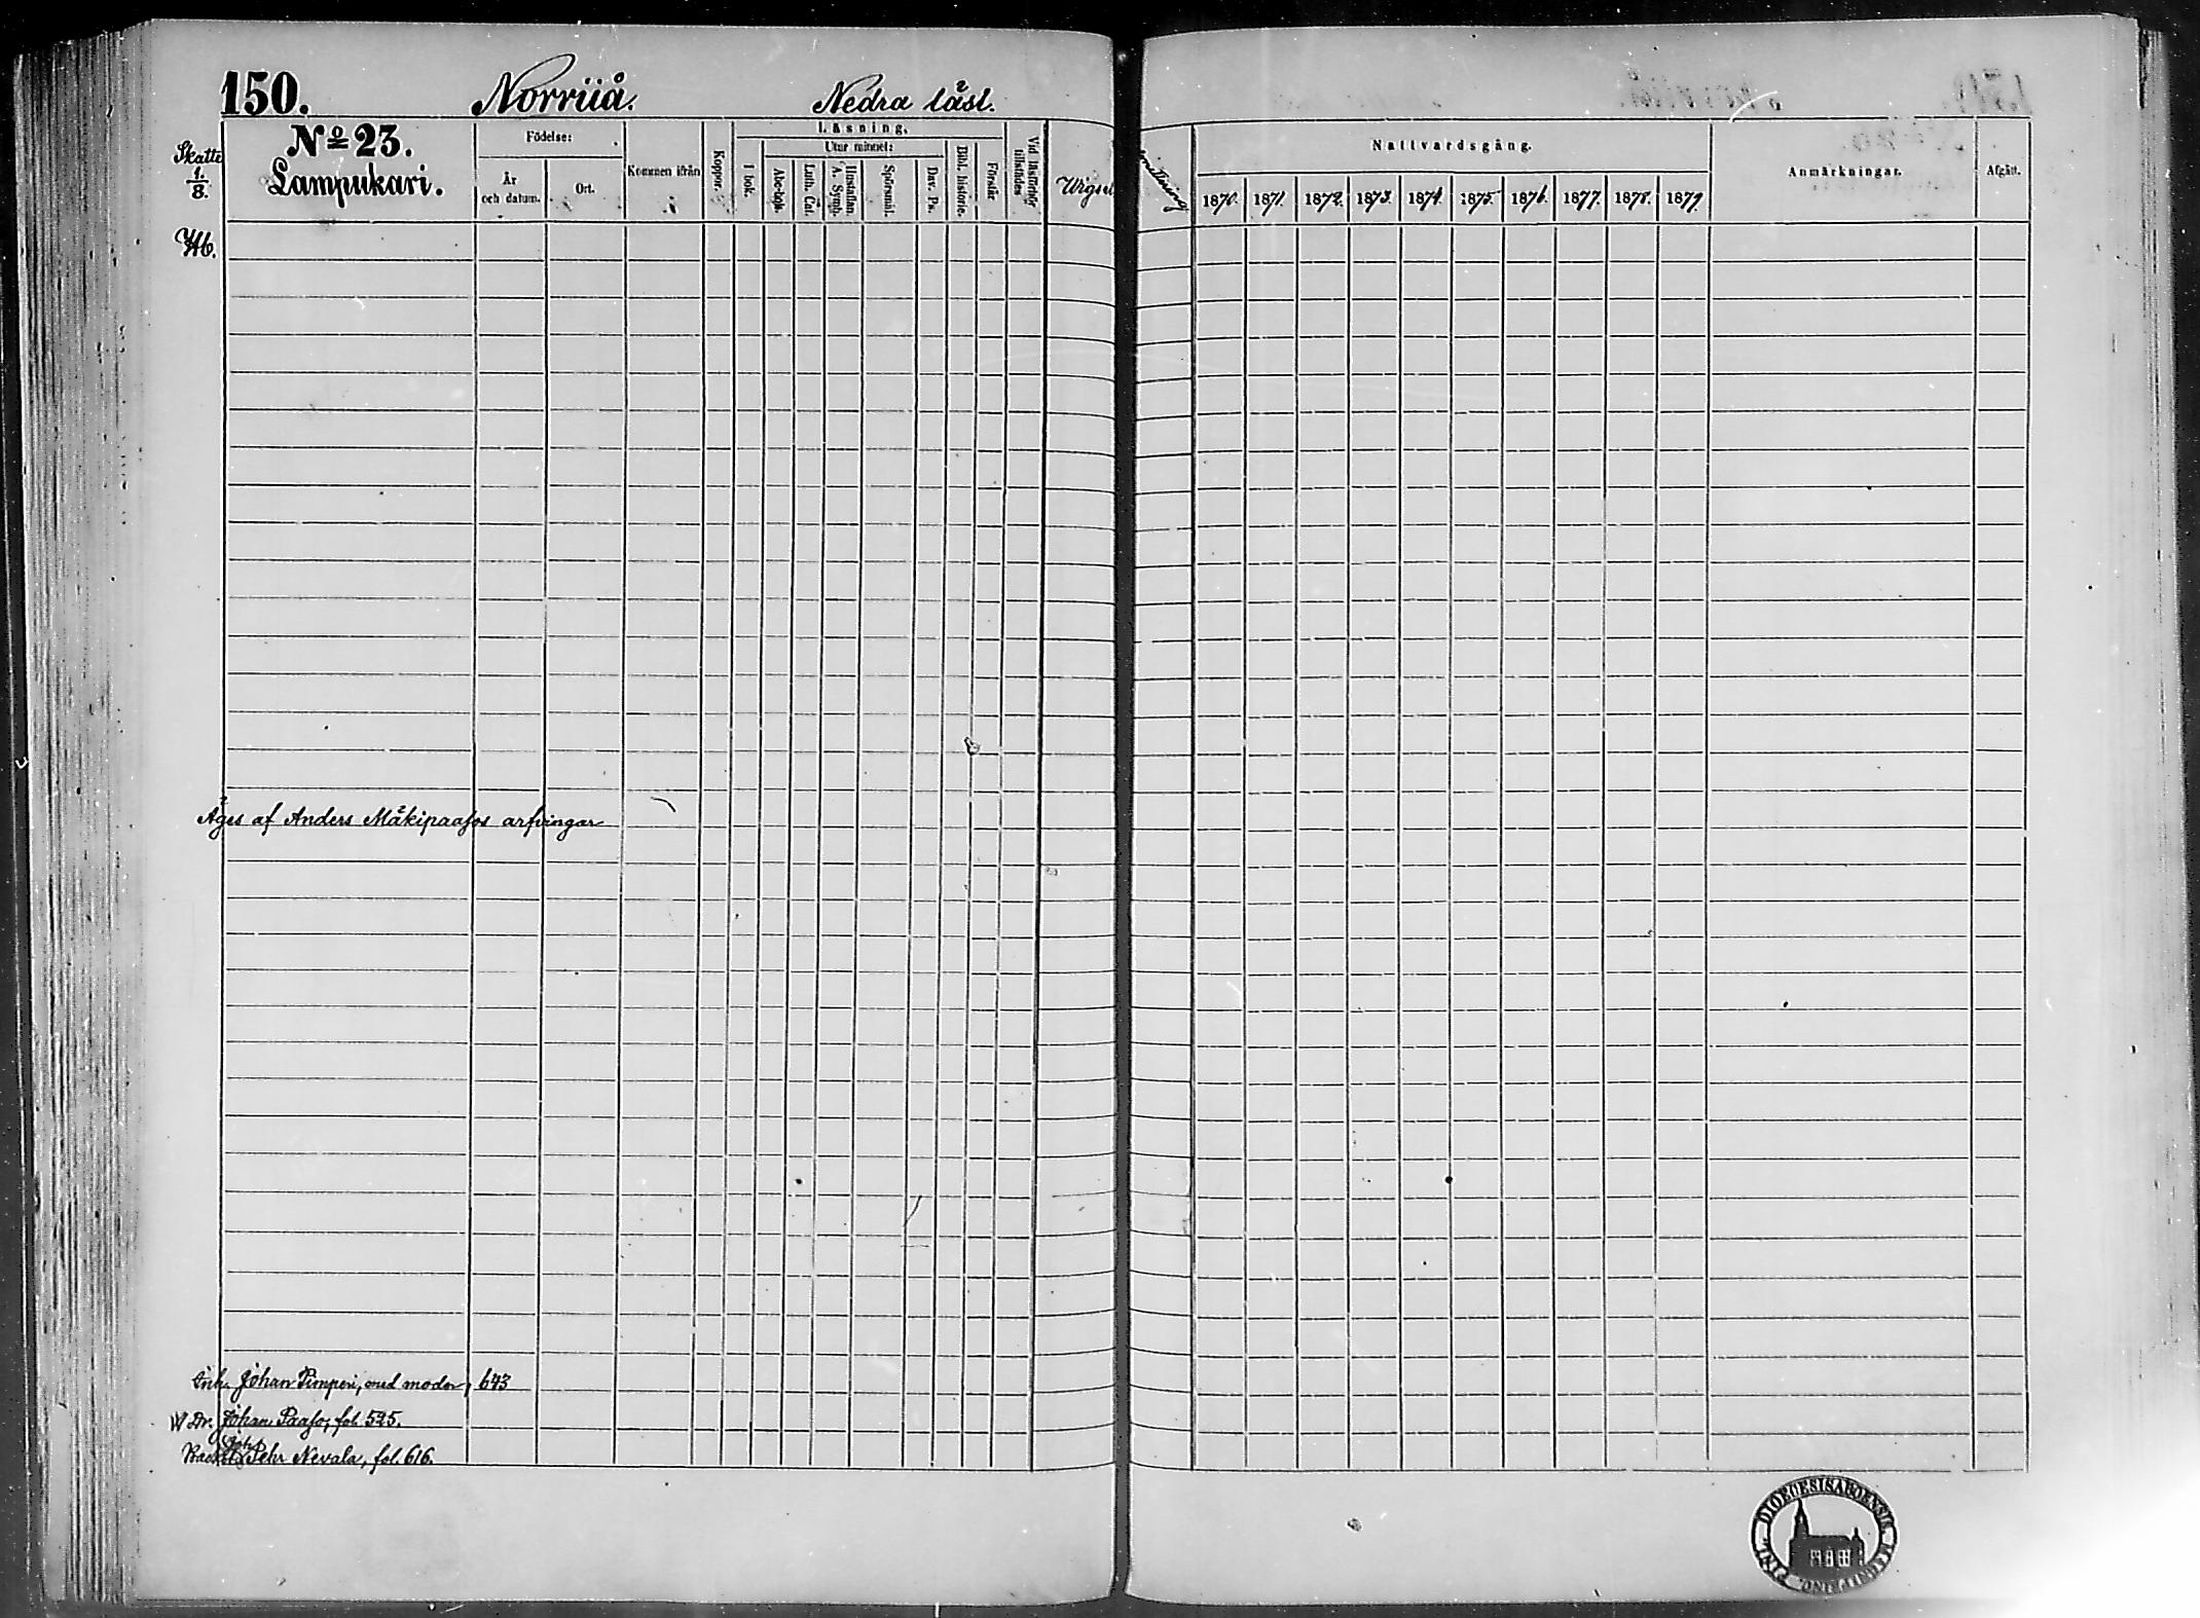 150. Norriiå. Nedra läsl.
Skatte 1/8.
No 23.
Lampukari.
Födelse:
År och datum.
Ort.
Kommen ifrån
Koppor.
Läsning.
I bok.
Utur minnet:
Abc-bok.
Luth. Cat.
Hustaflan. A. Symb.
Spörsmål.
Dav. Ps.
Bibl. historie.
Förstår
Vid läsförhör tillstädes
Nattvardsgång.
1870. 1871. 1872. 1873. 1874. 1875. 1876. 1877. 1878. 1879.
Anmärkningar.
Afgått.
Hb.
Äges af Anders Mäkipaasos arfvingar
Inh. Johan Pimperi, med moder, 643
Dr. Johan Paaso, fol. 525.
Joh.
Pehr Nevala, fol. 616.